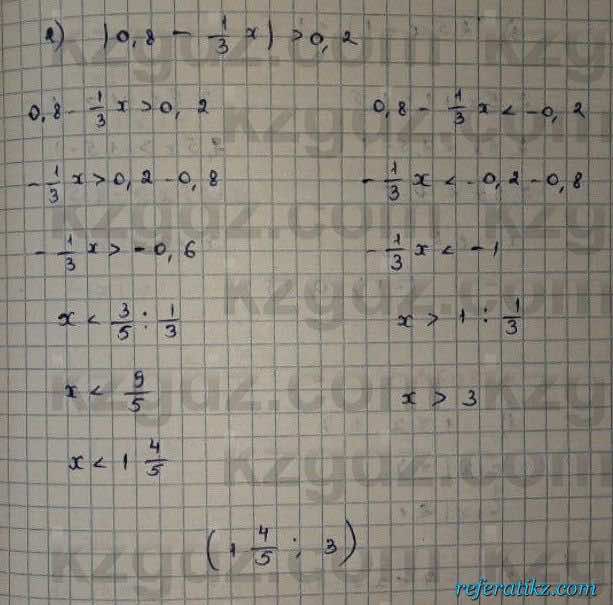 2) |0,8 - 1/3 x| > 0,2
0,8 - 1/3 x > 0,2
0,8 - 1/3 x < -0,2
- 1/3 x > 0,2 - 0,8
- 1/3 x < -0,2 - 0,8
- 1/3 x > -0,6
- 1/3 x < -1
x < 3/5 : 1/3
x > 1 : 1/3
x < 9/5
x > 3
x < 1 4/5
(1 4/5 ; 3)
kzgdz.com
referatikz.com